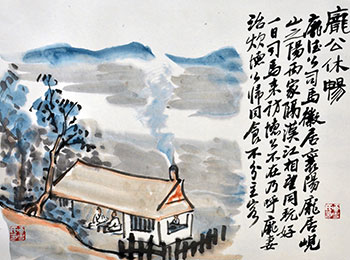 龐公休暢
龐德公司馬徽居襄陽龐居峴
山之陽兩家隔漢江相望同玩好
一日司馬来訪德公不在乃呼龐妻
治炊德公歸同食不分主客